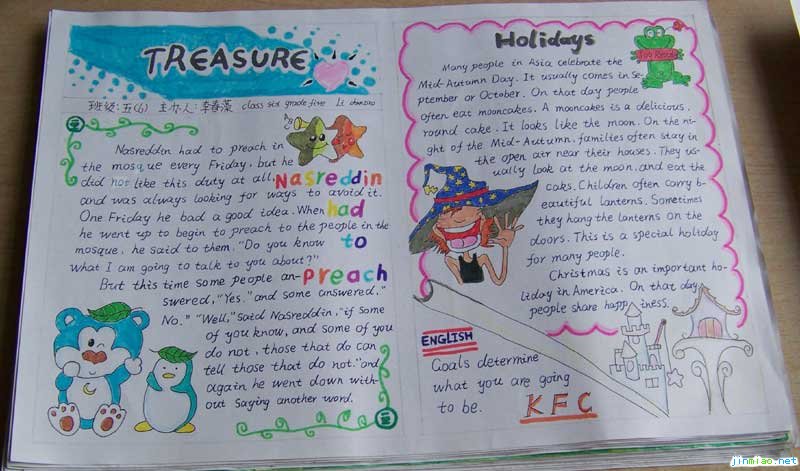 TREASURE
班级:五(6) 主办人:李春藻 class six grade five Li
ABC
Nasreddin had to preach in
the mosque every Friday, but he
did not like this duty at all, Nasreddin
and was always looking for ways to avoid it.
One Friday he bad a good idea. When had
he went up to begin to preach to the people in the
mosque, he said to them, "Do you know to
what I am going to talk to you about?"
But this time some people an- preach
swered, "Yes." and some answered,"
No." "Well," said Nasreddin, "if some
of you know, and some of you
do not, those that do can
tell those that do not." and
again he went down with-
out saying another word.
Holidays
Many people in Asia celebrate the
Mid-Autumn Day. It usually comes in Se-
ptember or October. On that day people
often eat mooncakes. A mooncakes is a delicious,
round cake. It looks like the moon. On the ni-
ght of the Mid-Autumn, families often stay in
the open air near their houses. They us-
ually look at the moon, and eat the
caks. Children often carry b-
eautiful lanterns. Sometimes
they hang the lanterns on the
doors. This is a special holiday
for many people.
Christmas is an important ho-
liday in America. On that day
people share happiness.
ENGLISH
Goals determine
what you are going
to be.
KFC
jinmiao.net